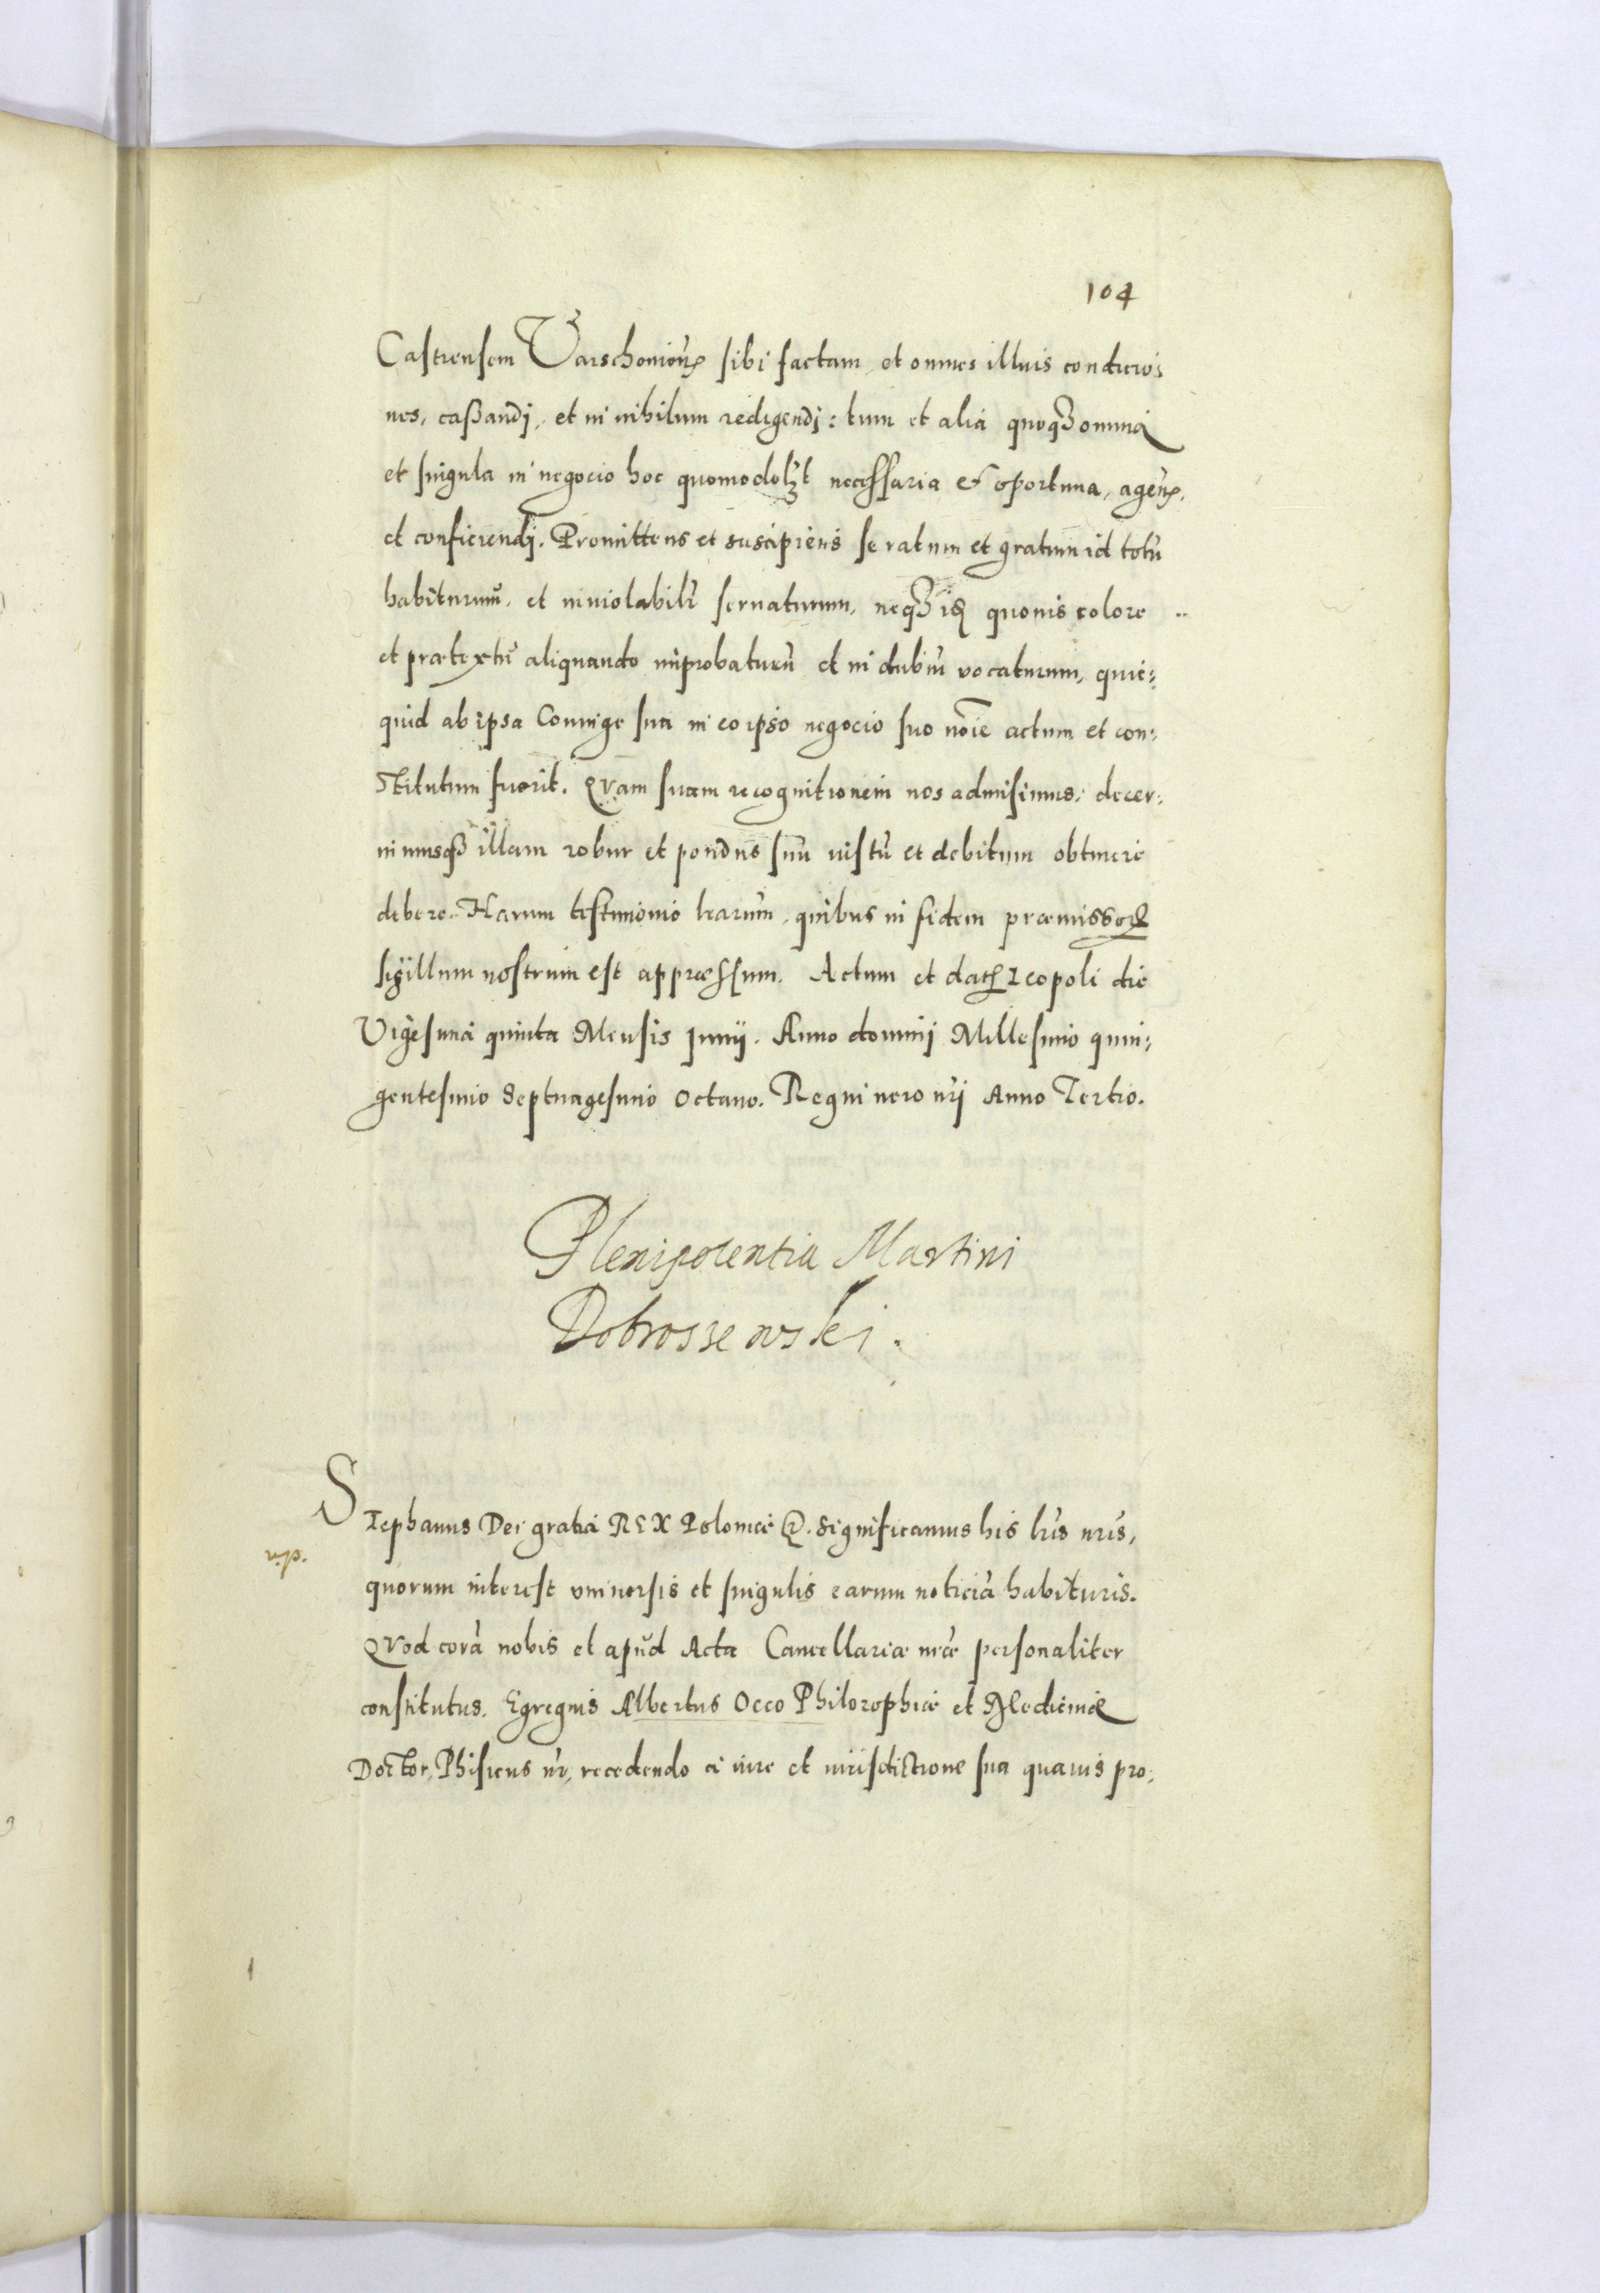 104
Castrensem Varschouien̄ sibi factam, et omnes illius conditio⸗
nes, caßandj, et in nihilum redigendj: tum et alia quoqꝫ omnia
et singula in negocio hoc quomodolꝫt necessaria et oportuna, agen̄,
et conficiendj. Promittens et suscipiens se ratum et gratum id totū
habiturum̄, et inuiolabilr̄ seruaturum, neqꝫ id quouis colore
et prætextū aliquando improbaturū et in dubiū vocaturum, quic⸗
quid ab ipsa Coniuge sua in eo ipso negocio suo noīe actum et con⸗
stitutum fuerit. Quam suam recognitionem nos admisimus, decer⸗
nimusqꝫ illam robur et pondus suū iustū et debitum obtinere
debere. Harum testimonio lrarum, quibus in fidem præmissoꝝ
sigillum nostrum est appræssum. Actum et datꝫ Leopoli die
Vigesima quinta Mensis Junij. Anno dominj Millesimo quin⸗
gentesimo Septuagesimo Octauo. Regni uero nr̄j Anno Tertio.
Plenipotentia Martini
Dobrossewski.
Stephanus Dei gratia REX Poloniæ &. Significamus his lrīs nrīs,
quorum interest vniuersis et singulis earum noticiā habituris.
Quod corā nobis et apud Acta Cancellariæ nrǣ personaliter
constitutus. Egregius Albertus Occo Philozophiæ et Medicinæ
Doctor, Phisicus nr̄, recedendo a iure et iurisdictione sua quauis pro⸗